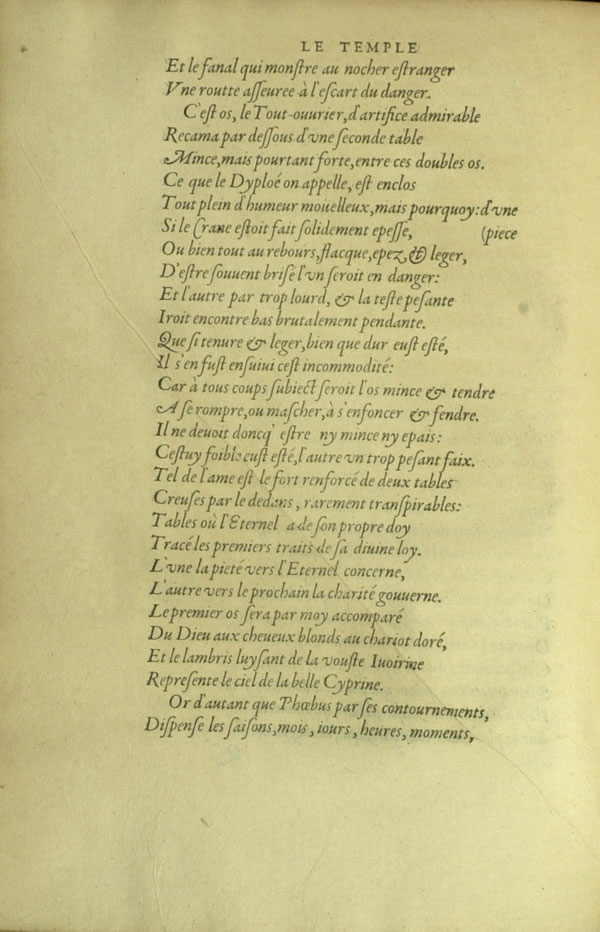 LE TEMPLE
Et le fanal qui monſtre au nocher eſtranger
Vne routte aſſeuree à l'eſcart du danger.
C'eſt os, le Tout-ouurier, d'artifice admirable
Recama par deſſous d'vne ſeconde table
Mince, mais pourtant forte, entre ces doubles os.
Ce que le Dyploé on appelle, eſt enclos
Tout plein d'humeur moüelleux, mais pourquoy: d'vne
Si le Crane eſtoit fait ſolidement epeſſe, (piece
Ou bien tout au rebours, flacque, epez, & leger,
D'eſtre ſouuent briſé l'vn ſeroit en danger:
Et l'autre par trop lourd, & la teſte peſante
Iroit encontre bas brutalement pendante.
Que ſi tenure & leger, bien que dur euſt eſté,
Il s'en fuſt enſuiui ceſt incommodité:
Car à tous coups ſubiect ſeroit l'os mince & tendre
A ſe rompre, ou maſcher, à s'enfoncer & fendre.
Il ne deuoit doncq' eſtre ny mince ny epais:
Ceſtuy foible euſt eſté, l'autre vn trop peſant faix.
Tel de l'ame eſt le fort renforcé de deux tables
Creuſes par le dedans, rarement tranſpirables:
Tables où l'Eternel a de ſon propre doy
Tracé les premiers traits de ſa diuine loy.
L'vne la pieté vers l'Eternel concerne,
L'autre vers le prochain la charité gouuerne.
Le premier os ſera par moy accomparé
Du Dieu aux cheueux blonds au chariot doré,
Et le lambris luyſant de la vouſte Iuoirine
Repreſente le ciel de la belle Cyprine.
Or d'autant que Phœbus par ſes contournements,
Diſpenſe les ſaiſons, mois, iours, heures, moments,